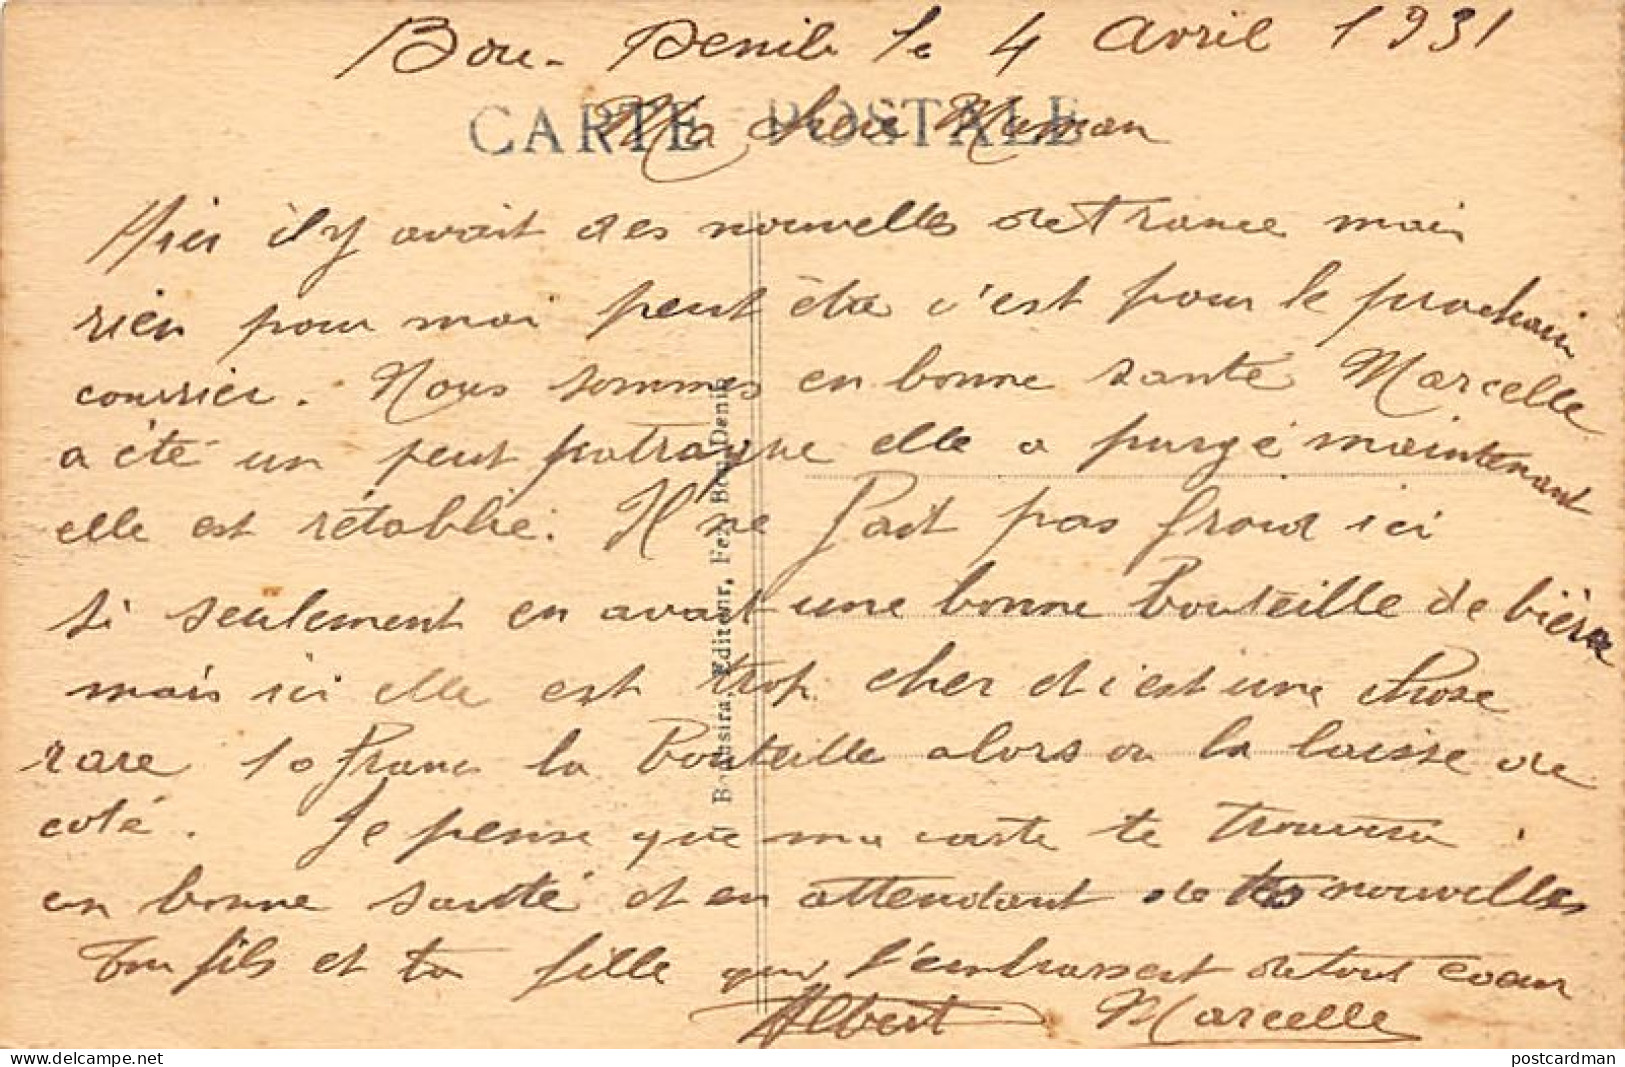 Bou-Denib le 4 Avril 1931
CARTE POSTALE
Ma chere Maman
Hier il y avait des nouvelles de France mais
rien pour moi peut être c'est pour le prochain
courrier. Nous sommes en bonne santé Marcelle
a été un peut patraque elle a purgé maintenant
elle est rétablie. Il ne fait pas froid ici
si seulement en avait une bonne bouteille de bière
mais ici elle est trop cher et c'est une chose
rare 10 francs la bouteille alors on la laisse de
coté. Je pense que ma carte te trouvera
en bonne santé et en attendant de tes nouvelles
Ton fils et ta fille qui t'embrassent de tout coeur
Albert Marcelle
Editeur, Fez, Bou-Denib
postcardman
www.delcampe.net